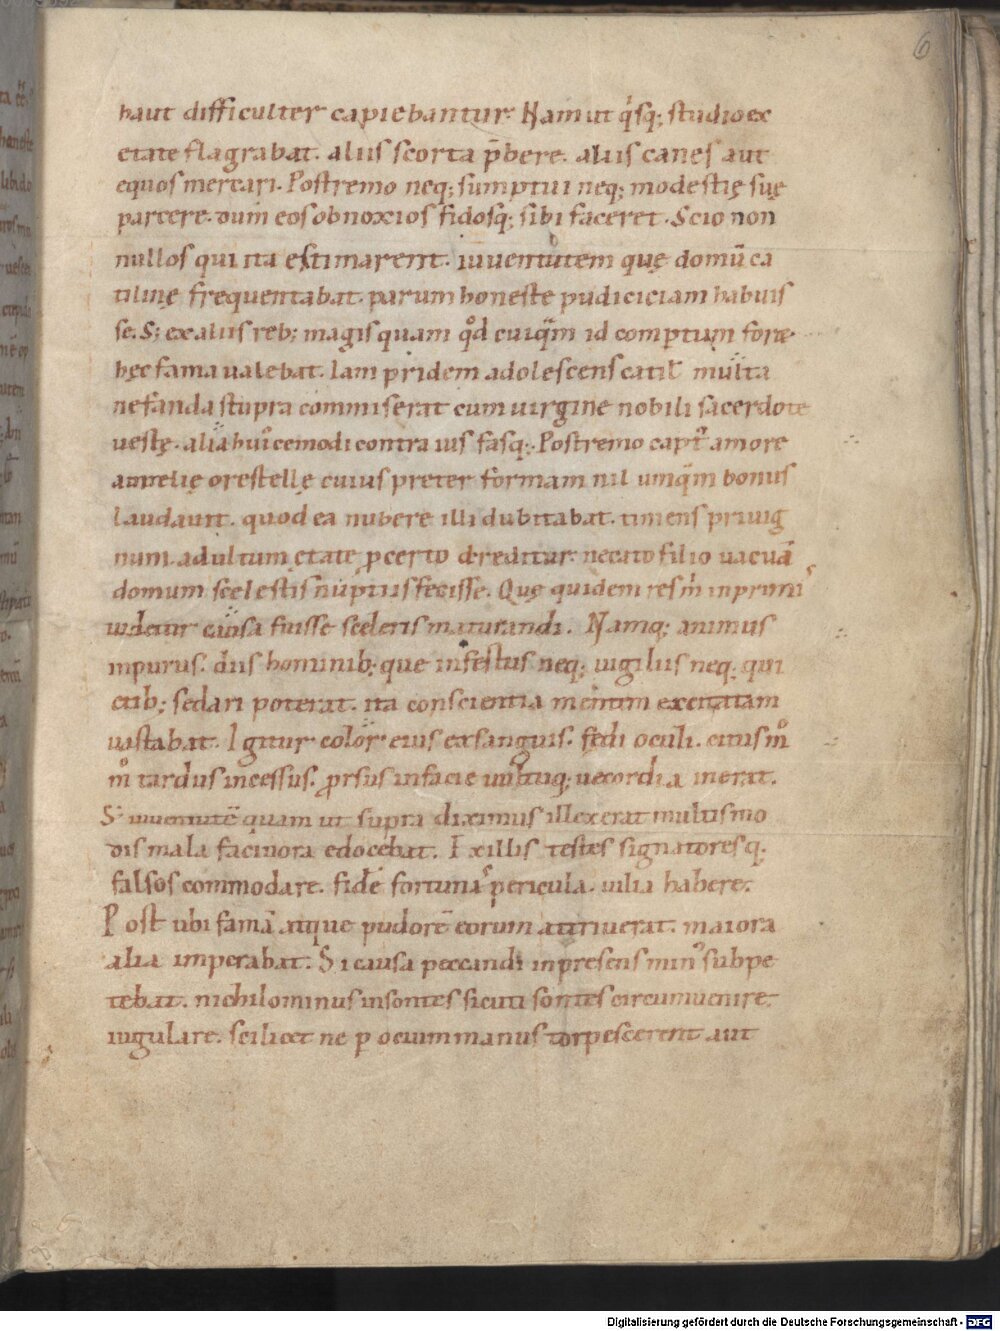 6
haut difficulter capiebantur. Nam ut q'sq; studio ex
etate flagrabat. aliis scorta p̄bere. aliis canes aut
equos mercari. Postremo neq; sumptui neq; modestię suę
parcere. dum eos obnoxios fidosq; sibi faceret. Scio non
nullos qui ita estimarent. iuventutem quę domū ca
tilinę frequentabat. parum honeste pudiciciam habuis
se. S; ex aliis reb; magis quam qͦd cuiqᷓm id comptum foret.
hęc fama ualebat. Iam pridem adolescens catił multa
nefanda stupra commiserat cum uirgine nobili sacerdote
uestę. alia hui᾿cemodi contra ius fasq;. Postremo capt᾿ amore
aurelię orestellę cuius preter formam nil umqᷓm bonus
laudauit. quod ea nubere illi dubitabat. timens priuig
num adultum ętate. p̱certo creditur necato filio uacuā
domum scelestis nuptiis fecisse. Quę quidem res m̓ inprimis
uidetur causa fuisse sceleris maturandi. Namq; animus
inpurus. diis hominib; que infestus neq; uigiliis neq. qui
etib; sedari poterat. ita conscientia mentem excitatam
uastabat. Igitur color eius exsanguis. fędi oculi. citus mͦ
mͦ tardus incessus. ꝓrsus in facie uultuq; uecordia inerat.
S; iuuentutē quam ut supra diximus illexerat multis mo
dis mala facinora edocebat. Ex illis testes signatoresq.
falsos commodare. fidē fortunas pericula. uilia habere.
Post ubi famā atque pudorē eorum attriuerat. maiora
alia imperabat. Si causa peccandi inpresens min᾿ subpe
tebat. nichilominus insontes sicuti sontes circumuenire.
iugulare. scilicet ne ꝑ ocium manus torpescerent aut
Digitalisierung gefördert durch die Deutsche Forschungsgemeinschaft - DFG